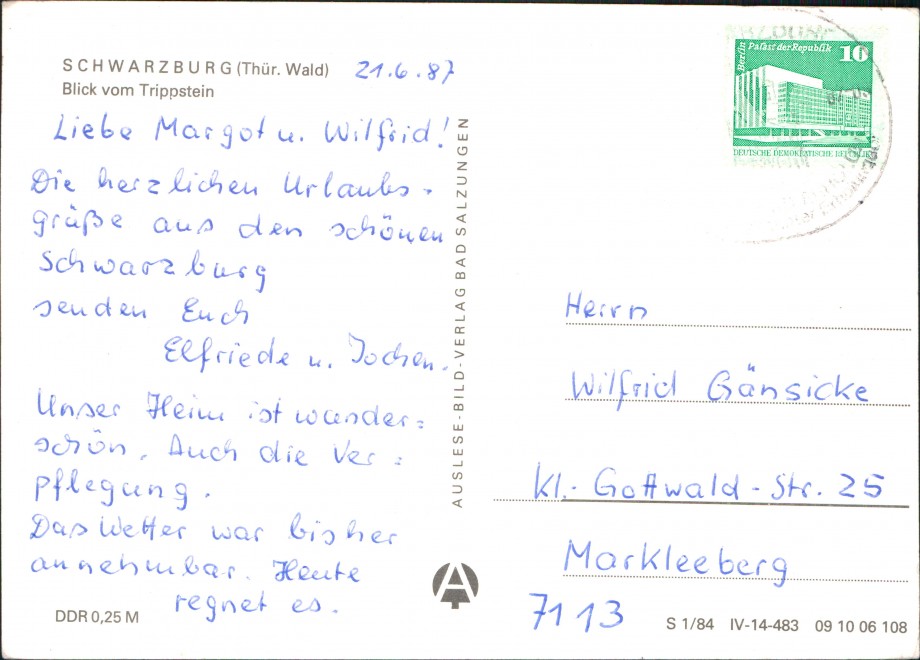 SCHWARZBURG (Thür. Wald) 21.6.87
Blick vom Trippstein
Liebe Margot u. Wilfrid!
Die herzlichen Urlaubs-
grüße aus den schönen
Schwarzburg
senden Euch
Elfriede u. Jochen.
Unser Heim ist wunder=
schön. Auch die Ver=
pflegung.
Das Wetter war bisher
annehmbar. Heute
regnet es.
DDR 0,25 M
AUSLESE-BILD-VERLAG BAD SALZUNGEN
A
Berlin
Palast der Republik 10
DEUTSCHE DEMOKRATISCHE REPUBLIK
Herrn
Wilfrid Gänsicke
Kl.-Gottwald-Str. 25
Markleeberg
7113
S 1/84 IV-14-483 09 10 06 108